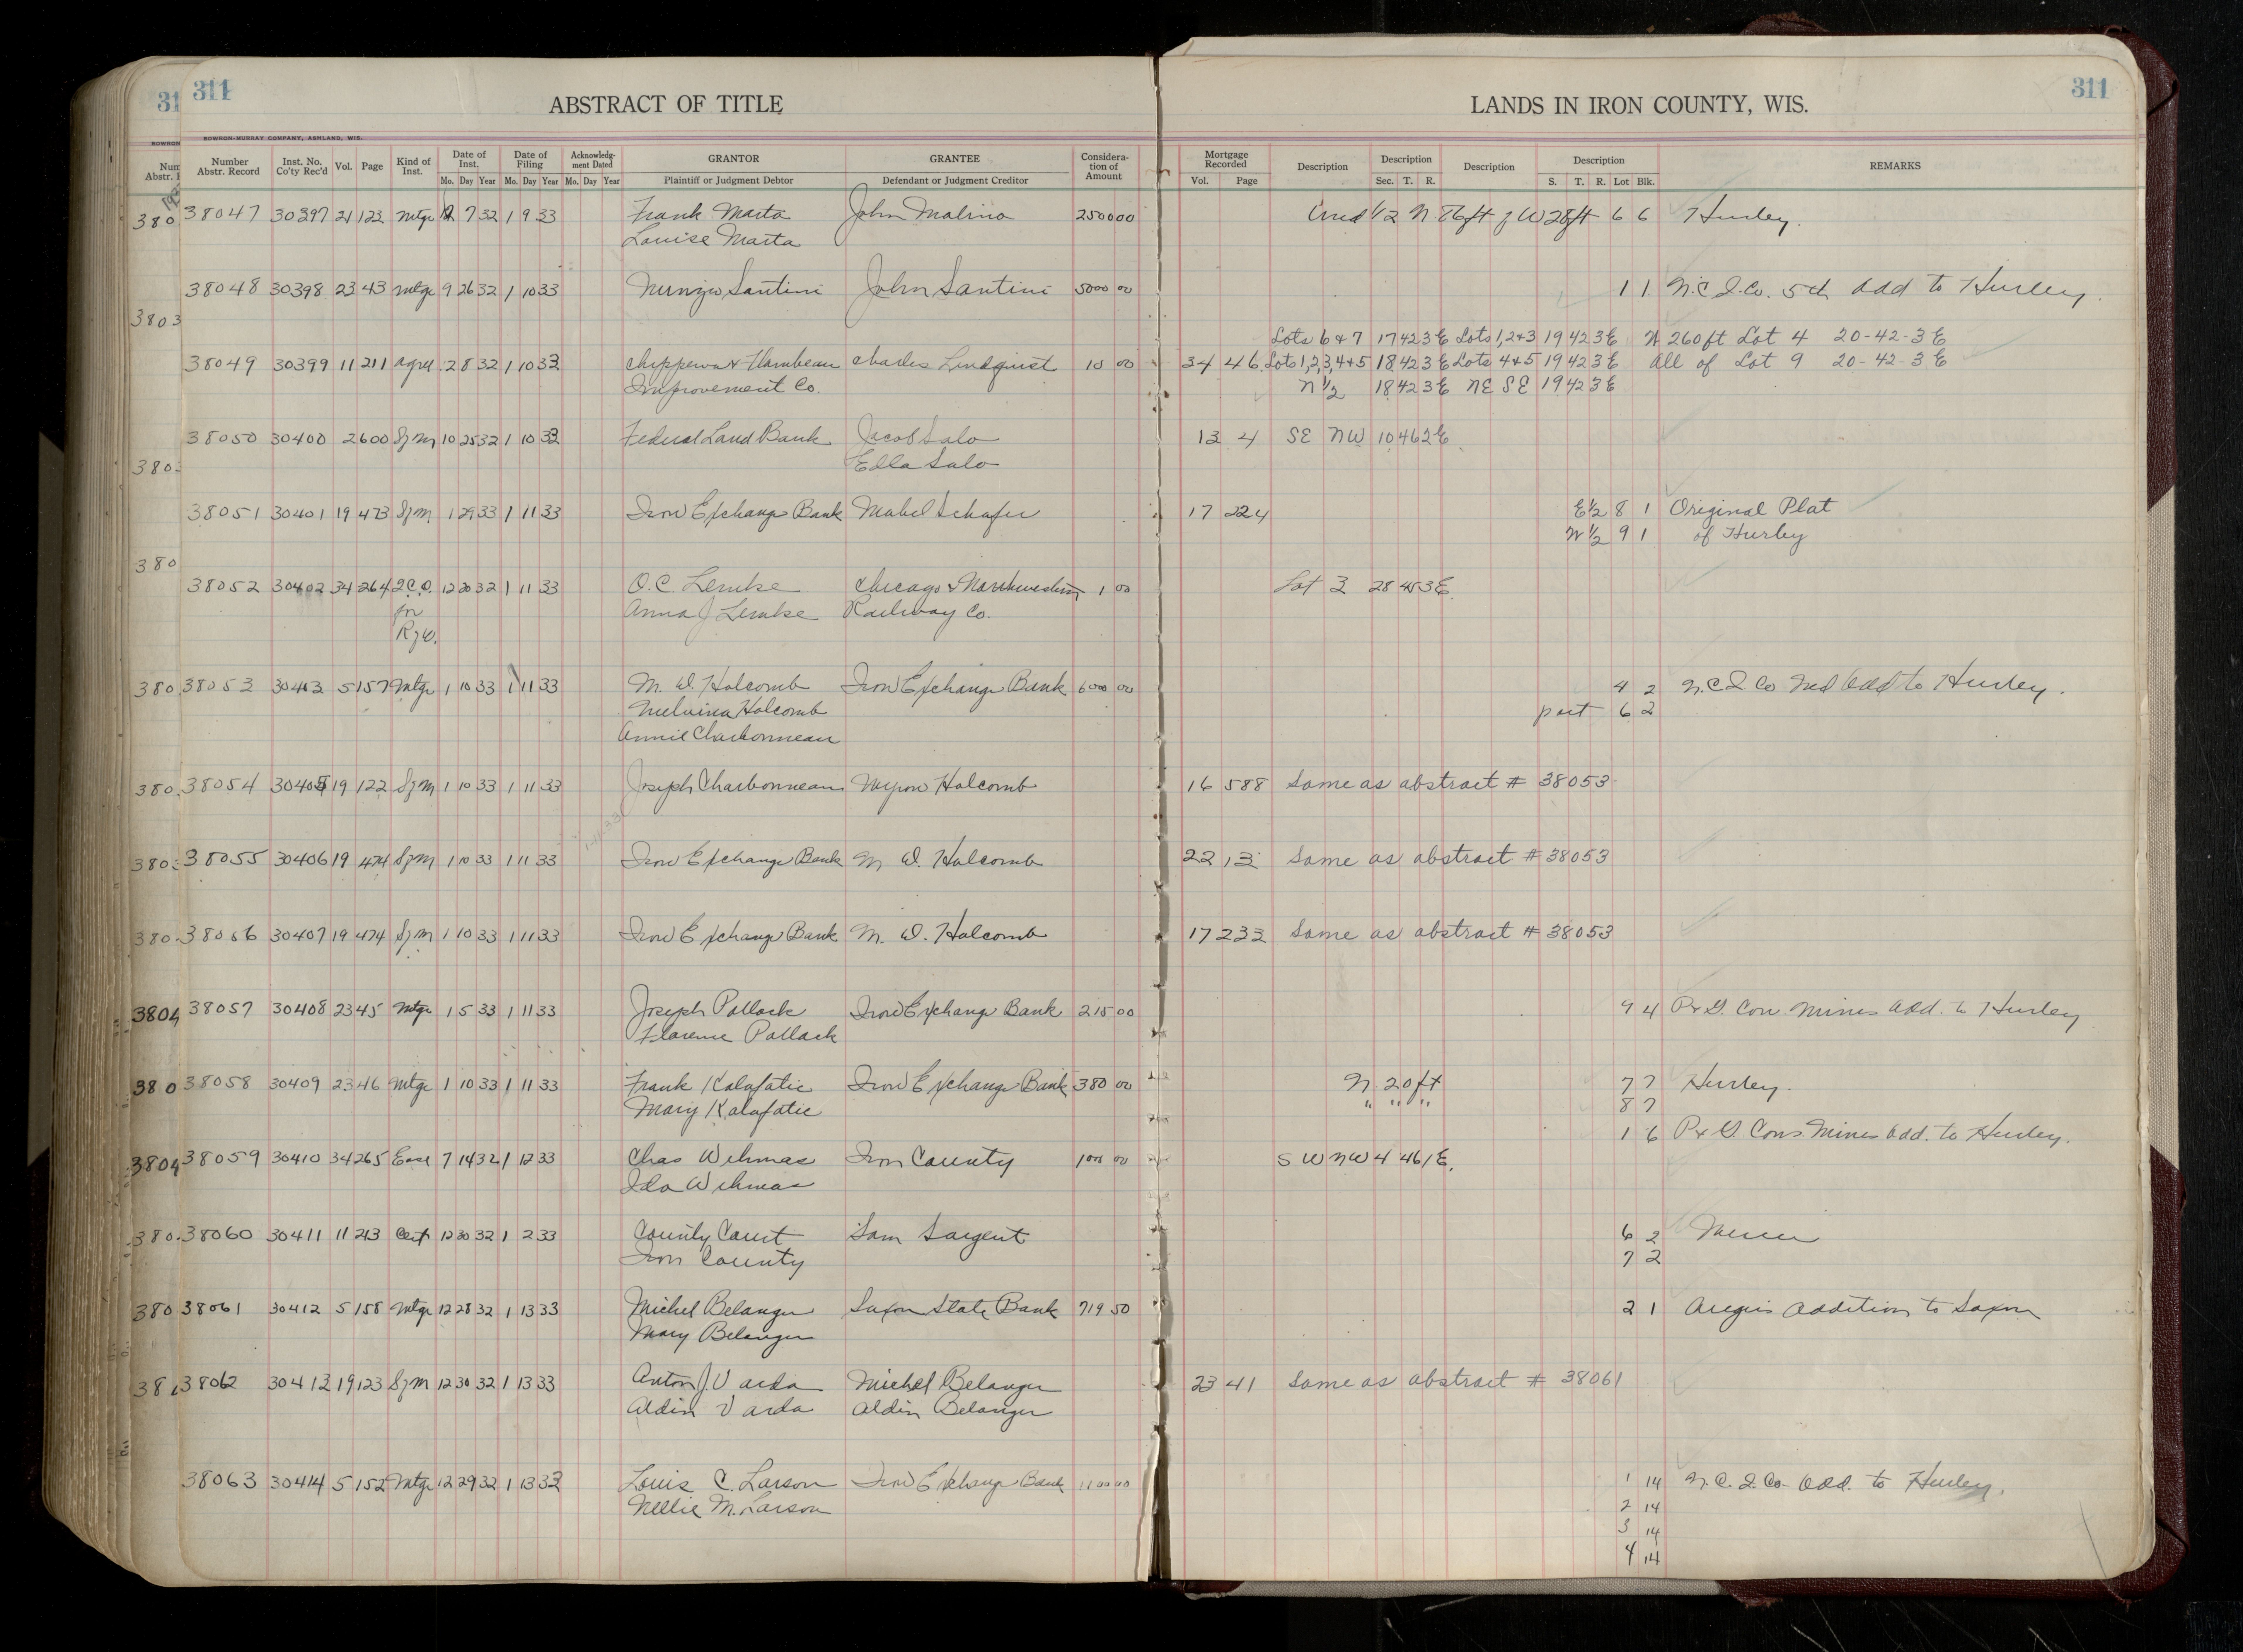 311
ABSTRACT OF TITLE
LANDS IN IRON COUNTY, WIS.
311
BOWRON-MURRAY COMPANY, ASHLAND, WIS.
Number Abstr. Record Inst. No. Co'ty Rec'd Vol. Page Kind of Inst. Date of Inst. Date of Filing Acknowledgment Dated GRANTOR GRANTEE Consideration of Amount Mortgage Recorded Description Description Description Description REMARKS
Mo. Day Year Mo. Day Year Mo. Day Year Plaintiff or Judgment Debtor Defendant or Judgment Creditor Vol. Page Sec. T. R. S. T. R. Lot Blk.
38047 30397 21 123 Mtge 12 7 32 1 9 33 Frank Marta John Malino 2500 00 Und 1/2 N 86ft of W 28ft 6 6 Hurley.
Louise Marta
38048 30398 23 43 Mtge 9 26 32 1 10 33 Santini John Santini 5000 00 1 1 N.C.I.Co. 5th Add to Hurley.
Lots 6 & 7 17 42 3E Lots 1,2+3 19 42 3E N 260ft Lot 4 20-42-3E
38049 30399 11 211 Agree 12 8 32 1 10 33 Chippewa & Flambeau Charles Lindquist 10 00 34 46 Lots 1,2,3,4+5 18 42 3E Lots 4+5 19 42 3E All of Lot 9 20-42-3E
Improvement Co. N 1/2 18 42 3E NE SE 19 42 3E
38050 30400 2 600 Sfm 10 25 32 1 10 33 Federal Land Bank Jacob Salo 13 4 SE NW 10 46 2E
Ella Salo
38051 30401 19 473 Sfm 1 29 33 1 11 33 Iron Exchange Bank Mabel Schafer 17 224 E 1/2 8 1 Original Plat
W 1/2 9 1 of Hurley
38052 30402 34 264 Q.C.D. 12 20 32 1 11 33 O.C. Lemke Chicago & Northwestern 1 00 Lot 3 28 45 3E.
for Anna J Lemke Railway Co.
RfW.
38053 30403 5 157 Mtge 1 10 33 1 11 33 M. D. Holcomb Iron Exchange Bank 6000 00 4 2 N.C.I. Co 2nd Add to Hurley.
Melvina Holcomb part 6 2
Annie Charbonneau
38054 30405 19 122 Sfm 1 10 33 1 11 33 Joseph Charbonneau Myron Holcomb 16 588 Same as abstract # 38053
38055 30406 19 474 Sfm 1 10 33 1 11 33 Iron Exchange Bank M D. Holcomb 22 13 Same as abstract # 38053
38056 30407 19 474 Sfm 1 10 33 1 11 33 Iron Exchange Bank M. D. Holcomb 17 233 Same as abstract # 38053
38057 30408 23 45 Mtge 1 5 33 1 11 33 Joseph Pollack Iron Exchange Bank 215 00 9 4 P & G. Con. Mines Add. to Hurley
Florence Pollack
38058 30409 23 46 Mtge 1 10 33 1 11 33 Frank Kalafatic Iron Exchange Bank 380 00 N. 20 ft 7 7 Hurley.
Mary Kalafatic " " " 8 7
1 6 P & G. Cons. Mines Add. to Hurley.
38059 30410 34 265 Ease 7 14 32 1 12 33 Chas Wehmas Iron County 100 00 SW NW 4 46 1E.
Ida Wehmas
38060 30411 11 213 Cert 12 30 32 1 2 33 County Court Sam Sargent 6 2 Mercer
Iron County 7 2
38061 30412 5 158 Mtge 12 28 32 1 13 33 Michel Belanger Saxon State Bank 719 50 2 1 Addition to Saxon
Mary Belanger
38062 30413 19 123 Sfm 12 30 32 1 13 33 Anton J Varda Michel Belanger 23 41 Same as abstract # 38061
Aldin Varda Aldin Belanger
38063 30414 5 152 Mtge 12 29 32 1 13 33 Louis C. Larson Iron Exchange Bank 1100 00 1 14 N.C.I. Co. Add. to Hurley.
Nellie M. Larson 2 14
3 14
4 14